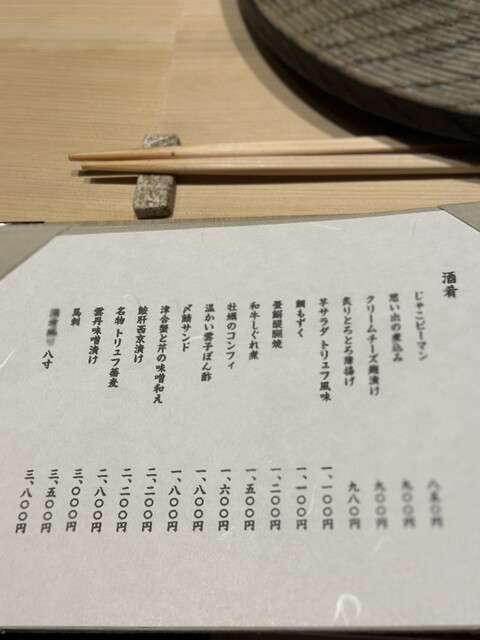 酒肴
じゃこピーマン 八五〇円
思い出の煮込み 九〇〇円
クリームチーズ麹漬け 九〇〇円
炙りとろとろ薄揚げ 九八〇円
芋サラダ トリュフ風味 一、一〇〇円
もずく 一、一〇〇円
畳鰯醍醐焼 一、二〇〇円
和牛しぐれ煮 一、五〇〇円
牡蠣のコンフィ 一、六〇〇円
温かい雲子ぽん酢 一、八〇〇円
〆鯖サンド 一、八〇〇円
津合蟹と芹の味噌和え 二、二〇〇円
鮟肝西京漬け 二、二〇〇円
名物 トリュフ蕎麦 二、八〇〇円
雲丹味噌漬け 三、〇〇〇円
馬刺 三、五〇〇円
八寸 三、八〇〇円